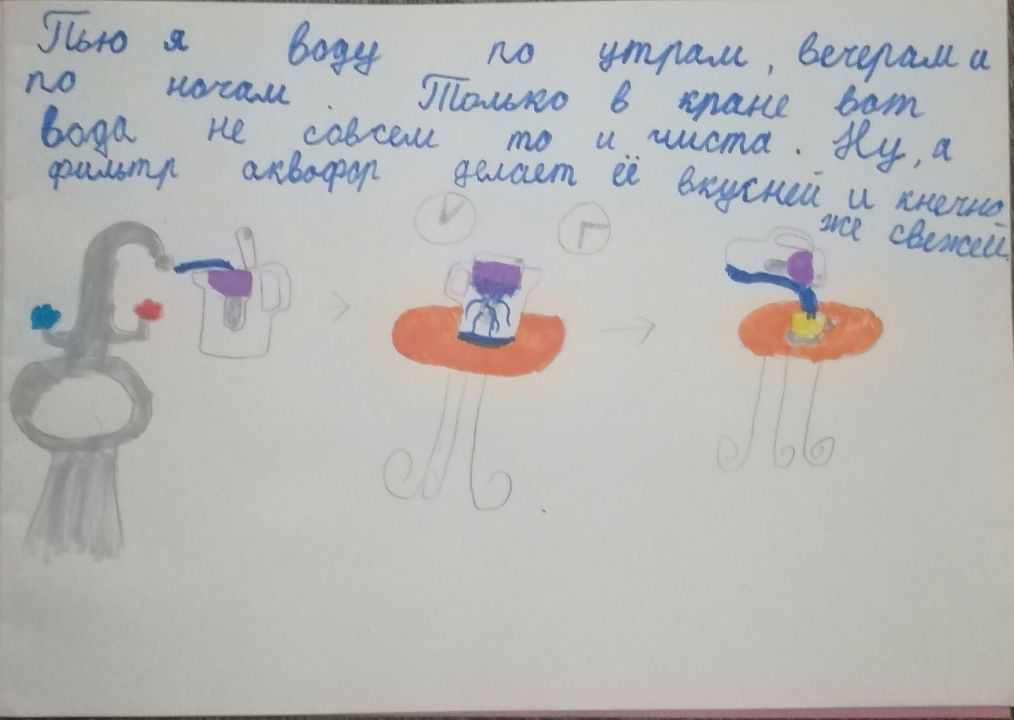 Пью я воду по утрам, вечерам и
по ночам. Только в кране вот
вода не совсем то и чиста. Ну, а
фильтр аквафор делает её вкусней и кнечно
же свежей.